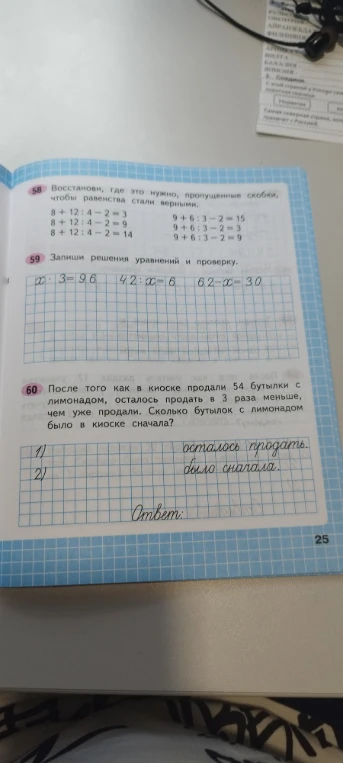 2. Соедини.
58 Восстанови, где это нужно, пропущенные скобки,
чтобы равенства стали верными.
8 + 12 : 4 − 2 = 3 9 + 6 : 3 − 2 = 15
8 + 12 : 4 − 2 = 9 9 + 6 : 3 − 2 = 3
8 + 12 : 4 − 2 = 14 9 + 6 : 3 − 2 = 9
59 Запиши решения уравнений и проверку.
x · 3 = 96 42 : x = 6 62 − x = 30
60 После того как в киоске продали 54 бутылки с
лимонадом, осталось продать в 3 раза меньше,
чем уже продали. Сколько бутылок с лимонадом
было в киоске сначала?
1) осталось продать.
2) было сначала.
Ответ:
25